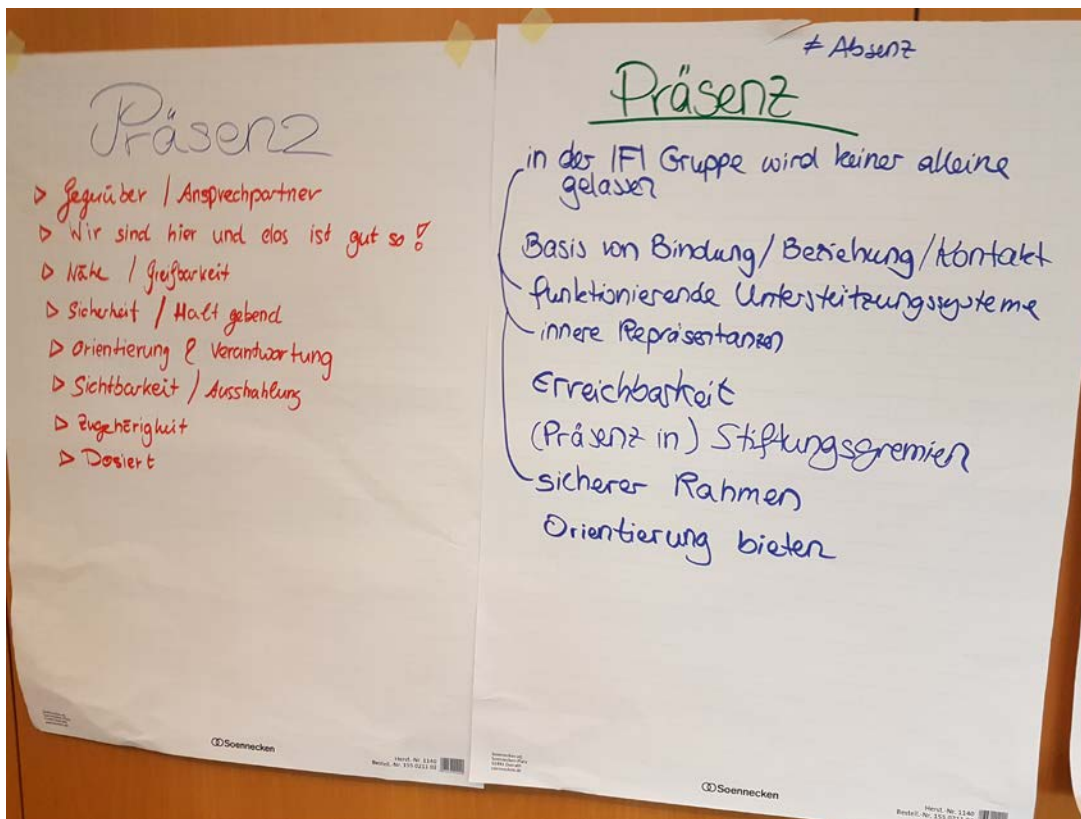 Präsenz
▷ Gegenüber / Ansprechpartner
▷ Wir sind hier und das ist gut so!
▷ Nähe / Greifbarkeit
▷ Sicherheit / Halt gebend
▷ Orientierung & Verantwortung
▷ Sichtbarkeit / Ausstrahlung
▷ Zugehörigkeit
▷ Dosiert
Soennecken
Herst.-Nr. 1140
≠ Absenz
Präsenz
in der IFI Gruppe wird keiner alleine
gelassen
Basis von Bindung / Beziehung / Kontakt
funktionierende Unterstützungssysteme
innere Repräsentanzen
Erreichbarkeit
(Präsenz in) Stiftungsgremien
sicherer Rahmen
Orientierung bieten
Soennecken
Herst.-Nr. 1140